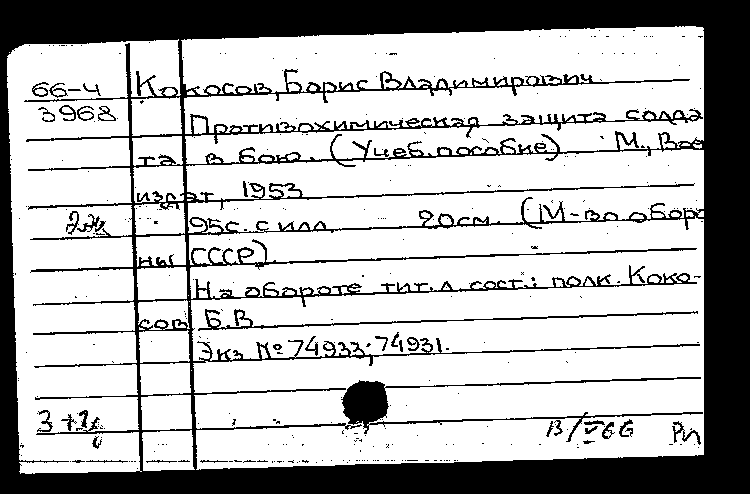 66-4 Кокосов, Борис Владимирович.
3968
Противохимическая защита солда
та в бою. (Учеб. пособие) М., Вое
издат, 1953
95с. с илл. 20см. (М-во оборо
ны СССР).
На обороте тит. л. сост.: полк. Коко-
сов Б.В.
Экз № 74933; 74931.
В/V 66